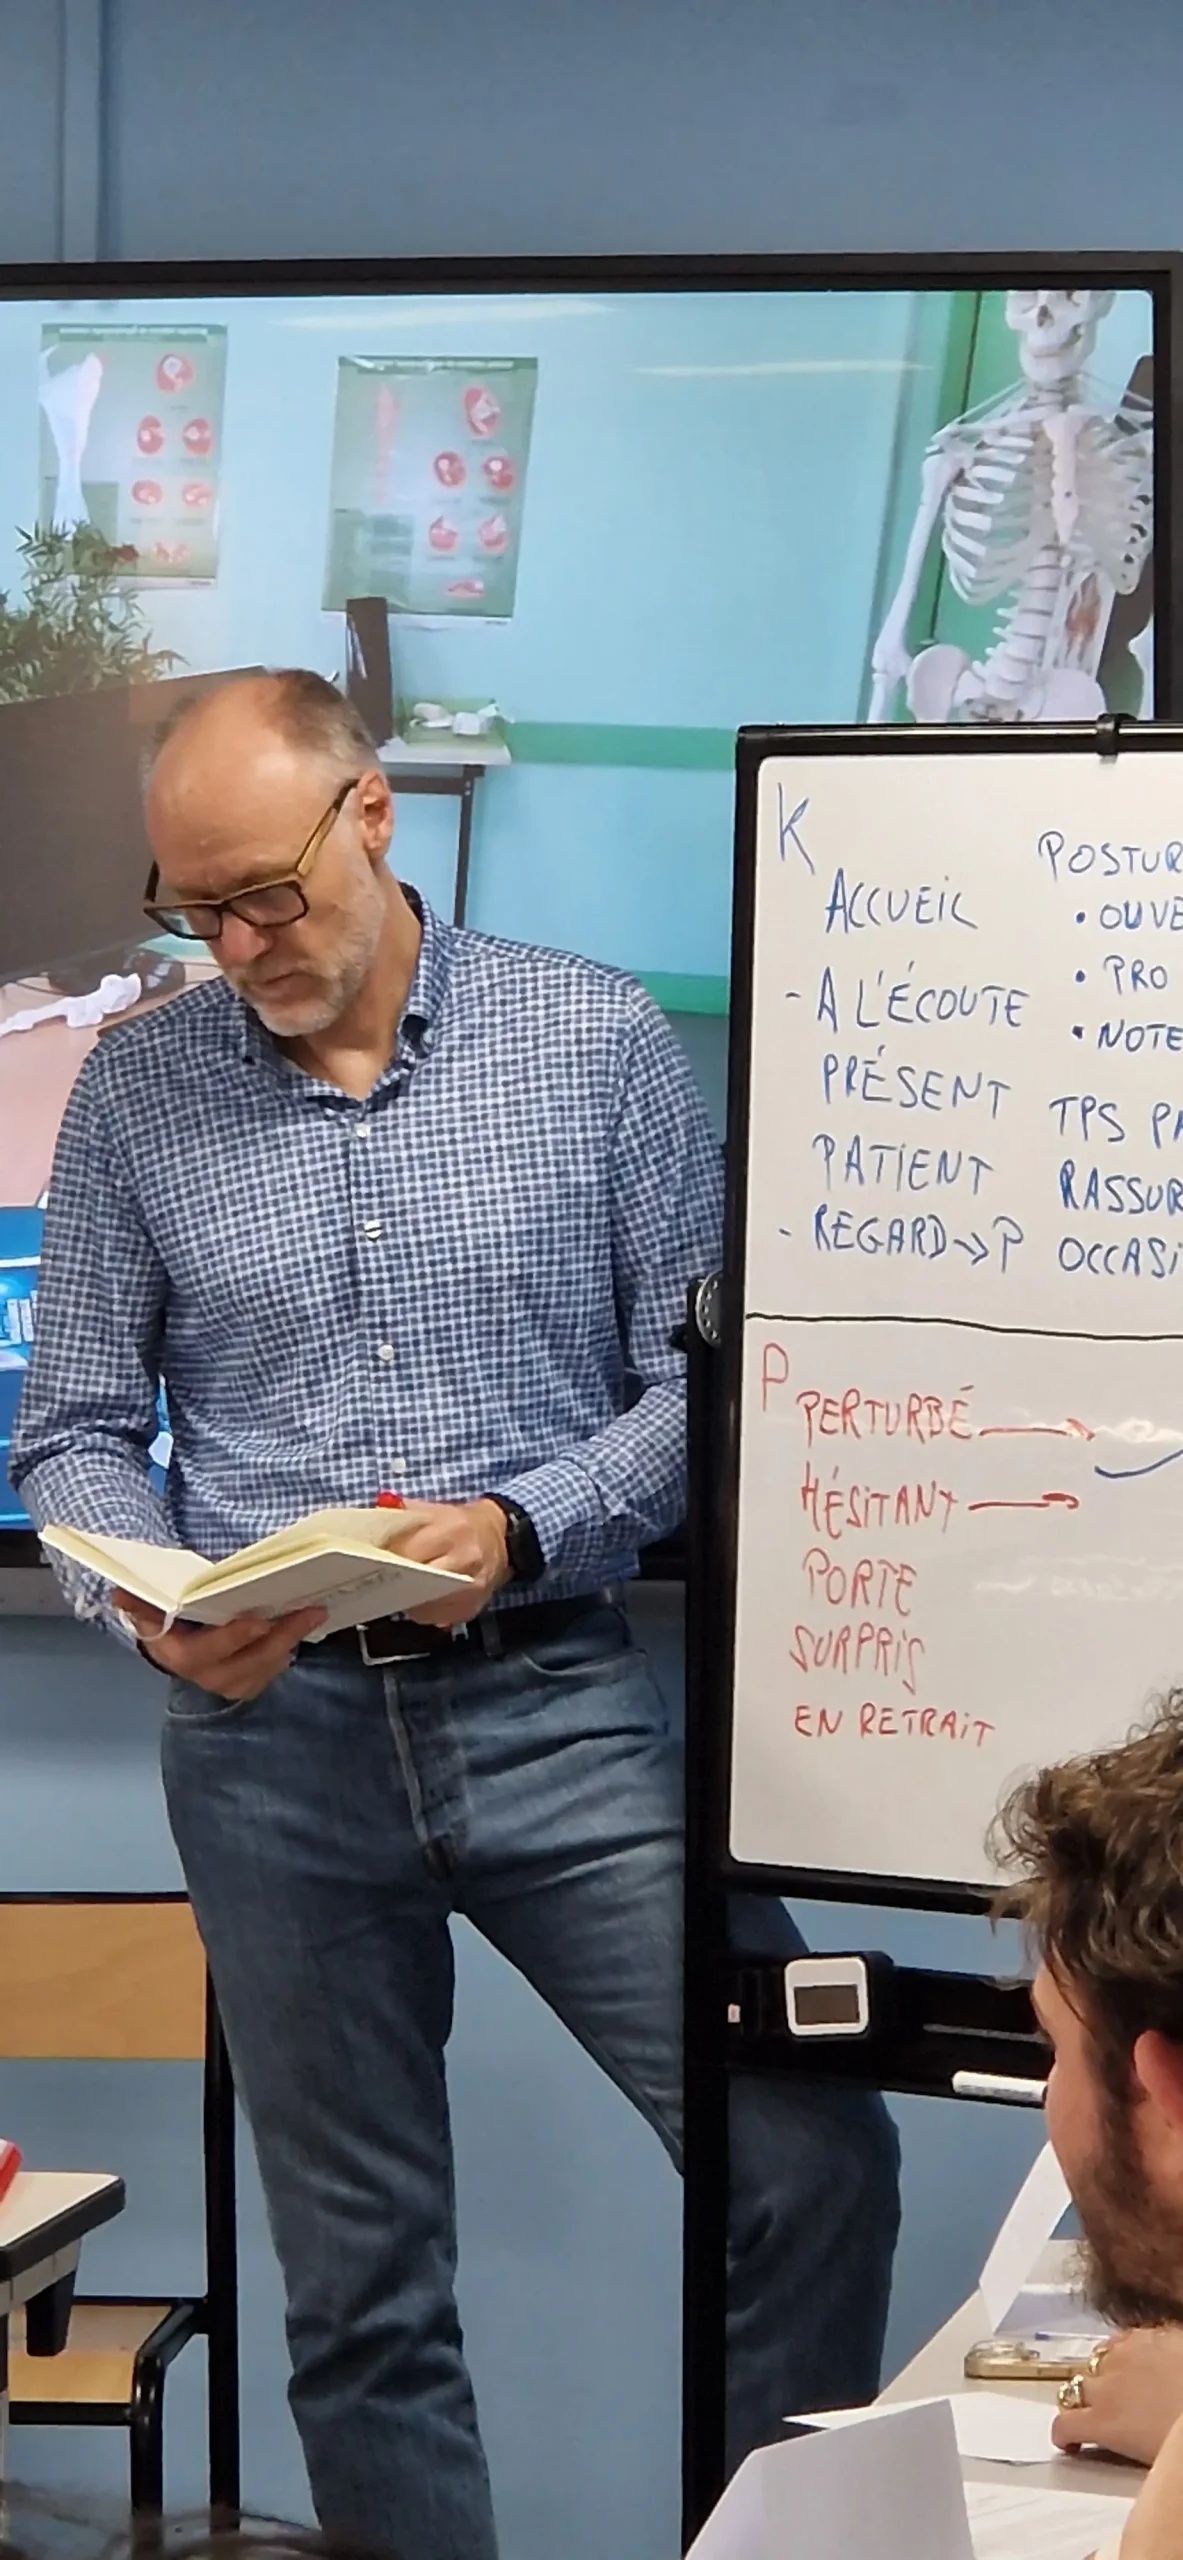 K
ACCUEIL
- A L'ÉCOUTE
PRÉSENT
PATIENT
- REGARD → P
POSTUR
• OUVE
• PRO
• NOTE
TPS PA
RASSUR
OCCASI
P
PERTURBÉ →
HÉSITANT →
PORTE
SURPRIS
EN RETRAIT